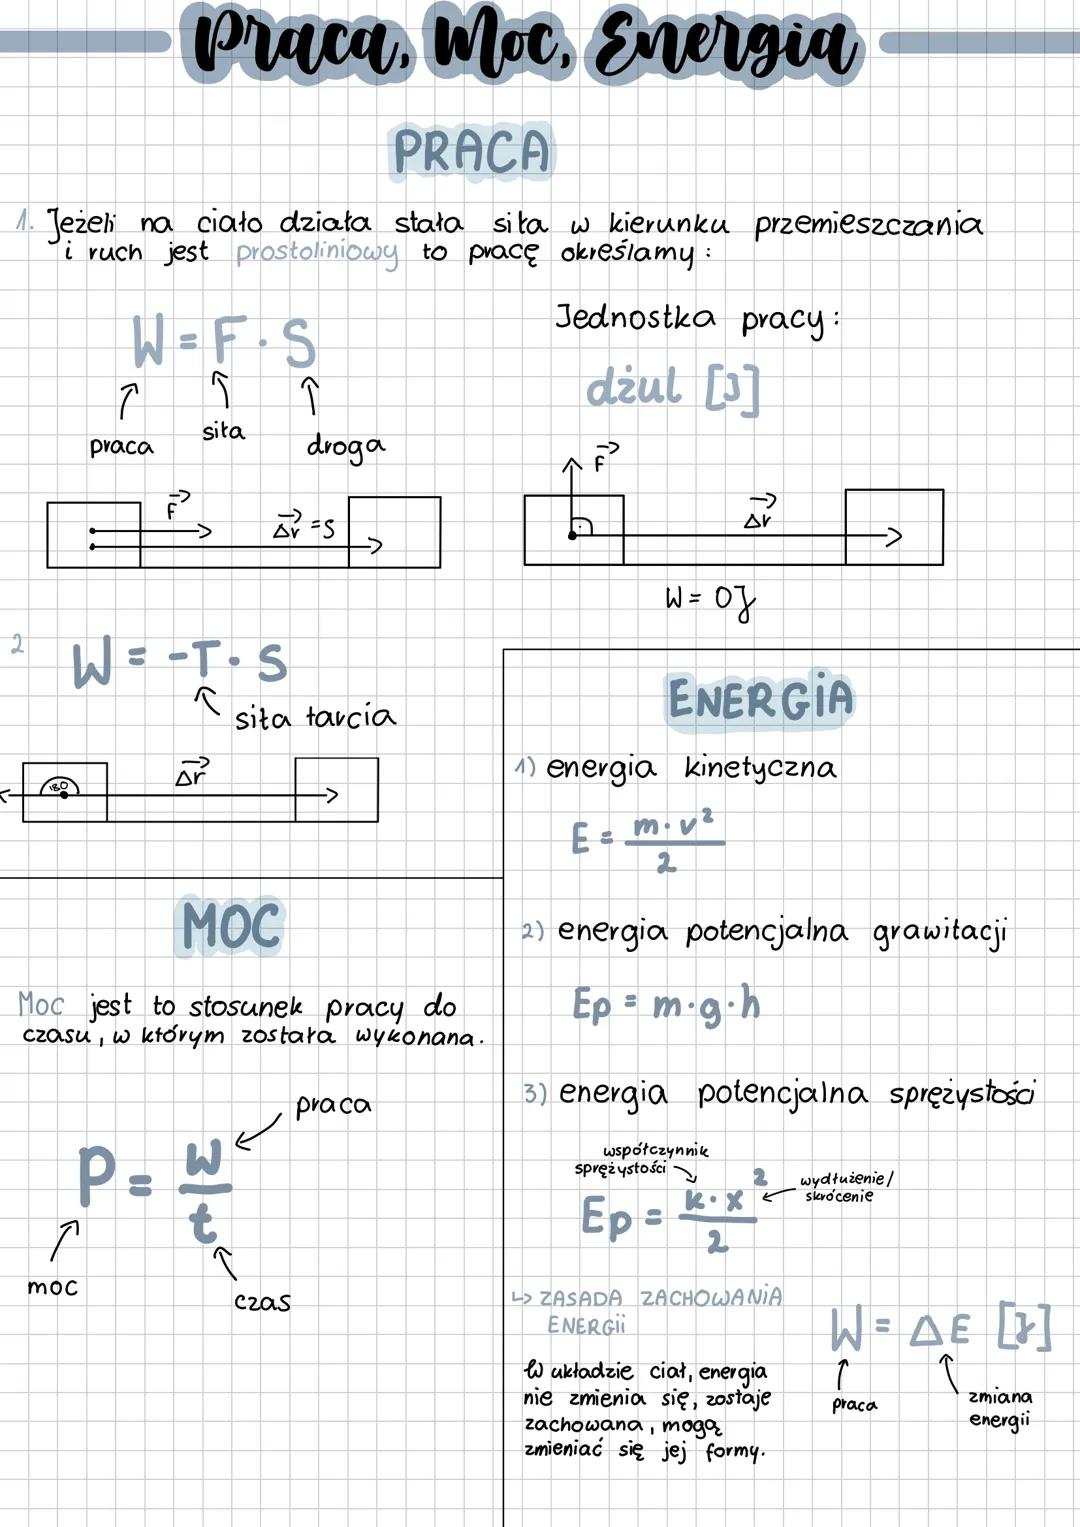 Praca, Moc, Energia
PRACA
1. Jeżeli na ciało działa stała siła w kierunku przemieszczania
i ruch jest prostoliniowy to pracę określamy:
W = F · S
praca
siła
droga
Jednostka pracy:
dżul [J]
F
Δr = S
F
Δr
W = 0J
2 W = -T · S
siła tarcia
180
Δr
MOC
Moc jest to stosunek pracy do
czasu, w którym została wykonana.
P = W/t
praca
moc
czas
ENERGiA
1) energia kinetyczna
E = m·v²/2
2) energia potencjalna grawitacji
Ep = m·g·h
3) energia potencjalna sprężystości
współczynnik
sprężystości
Ep = k·x²/2
wydłużenie/
skrócenie
↳ ZASADA ZACHOWANiA
ENERGii
W układzie ciał, energia
nie zmienia się, zostaje
zachowana, mogą
zmieniać się jej formy.
W = ΔE [J]
praca
zmiana
energii